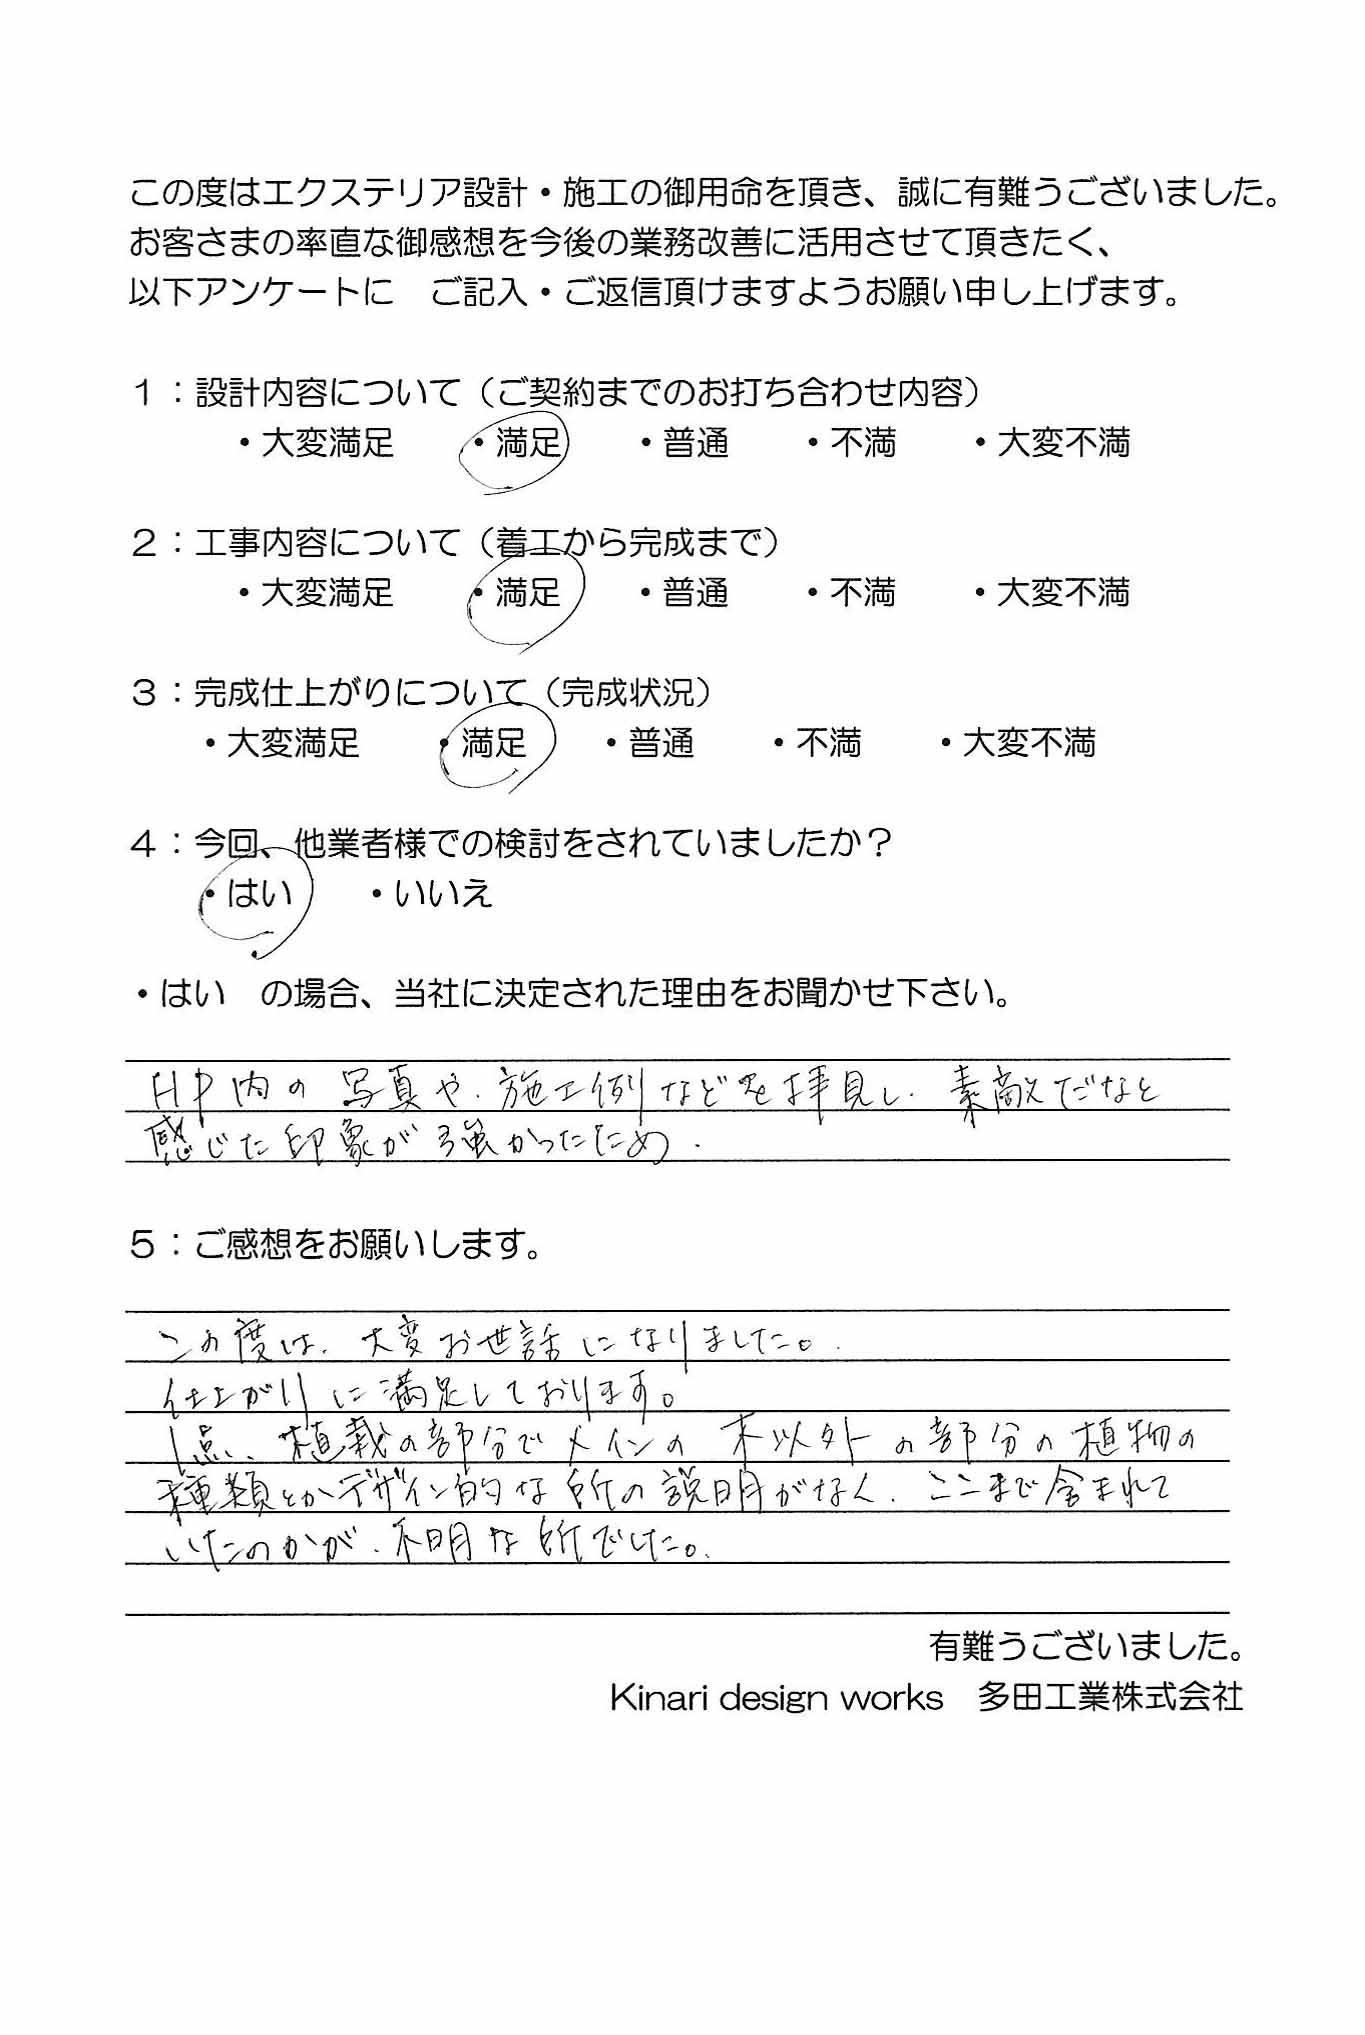 この度はエクステリア設計・施工の御用命を頂き、誠に有難うございました。
お客さまの率直な御感想を今後の業務改善に活用させて頂きたく、
以下アンケートに　ご記入・ご返信頂けますようお願い申し上げます。
１：設計内容について（ご契約までのお打ち合わせ内容）
・大変満足　・満足　・普通　・不満　・大変不満
２：工事内容について（着工から完成まで）
・大変満足　・満足　・普通　・不満　・大変不満
３：完成仕上がりについて（完成状況）
・大変満足　・満足　・普通　・不満　・大変不満
４：今回、他業者様での検討をされていましたか？
・はい　・いいえ
・はい　の場合、当社に決定された理由をお聞かせ下さい。
HP内の写真や、施工例などを拝見し、素敵だなと
感じた印象が強かったため.
５：ご感想をお願いします。
この度は、大変お世話になりました。
仕上がりに満足しております。
1点、植栽の部分でメインの木以外の部分の植物の
種類とかデザイン的な所の説明がなく、ここまで含まれて
いたのかが、不明な所でした。
有難うございました。
Kinari design works　多田工業株式会社